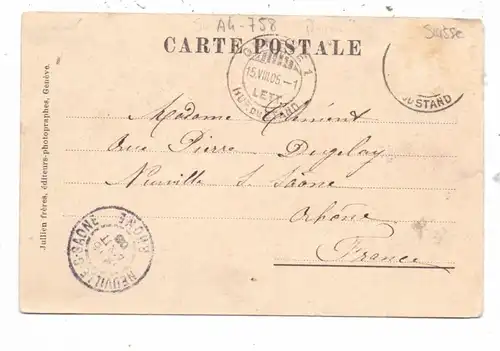 A4-758
Suisse
CARTE POSTALE
15.VIII.05.-1
LETT.
Madame Clément
rue Pierre Dugelay
Neuville s. Saône
Rhône
France
NEUVILLE-S-SAONE
RHONE
Jullien frères, éditeurs-photographes, Genève.